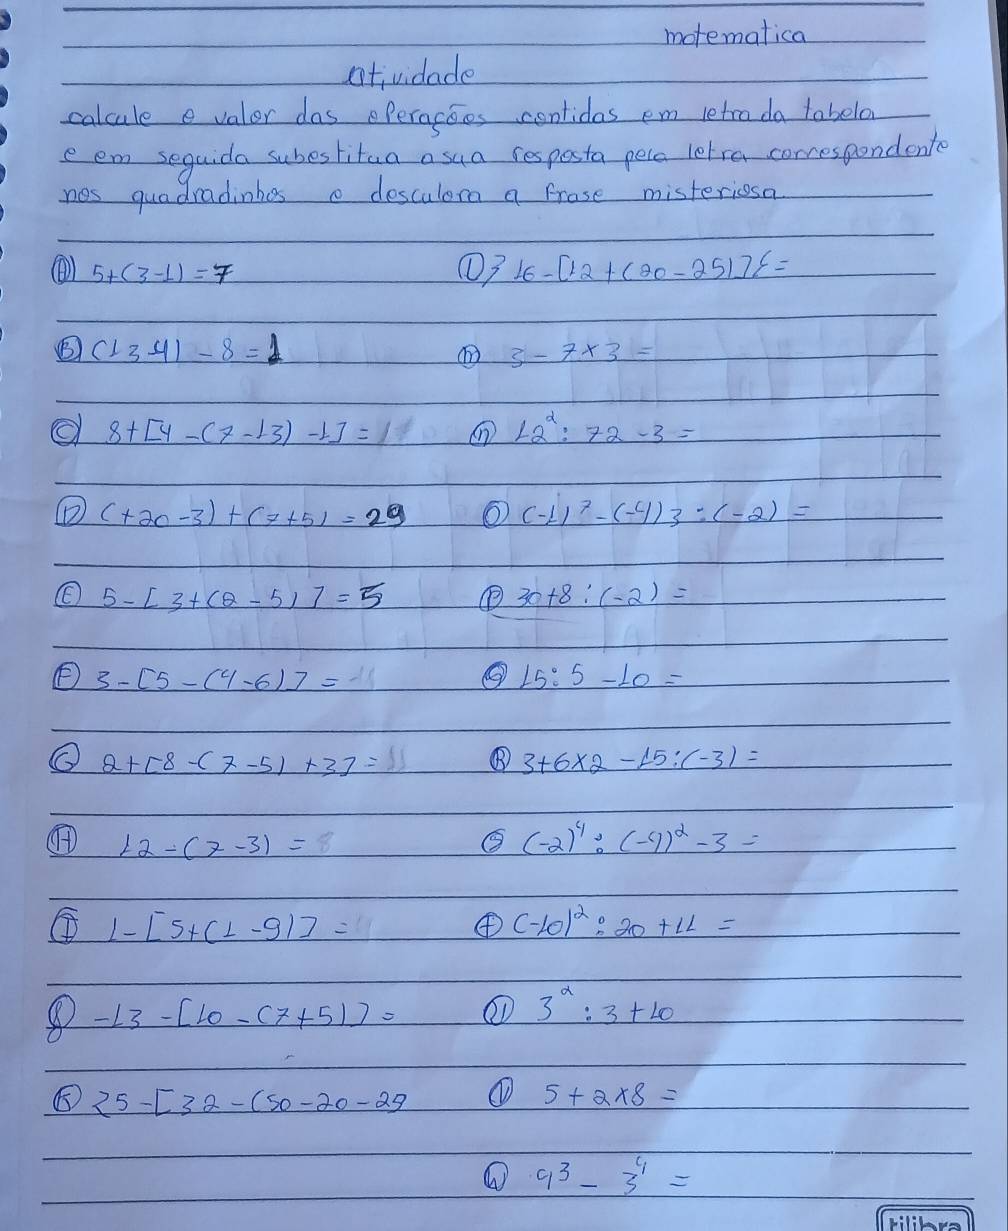 motematica
atividade
calcule e valor das operações contidas em letra da tabela
e em seguida subestitua a sua resposta pela letra correspondente
nos quadradinhos e desculora a frase misteriosa
A) 5+(3-1)=7
L) } 16-[12+(20-25)]{=
B) (13-4)-8=1
m) 3-7×3=
C) 8+[4-(7-13)-1]=
n) 12²:72-3=
D) (+20-3)+(7+5)=29
O) (-1)?-(-4)3:(-2)=
E) 5-[3+(2-5)]=5
P) 30+8:(-2)=
F) 3-[5-(4-6)]=
Q) 15:5-10=
G) 2+[8-(7-5)+3]=11
R) 3+6×2-15:(-3)=
H) 12-(7-3)=8
S) (-2)⁴:(-4)²-3=
I) 1-[5+(1-9)]=
t) (-10)²:20+11=
J) -13-[10-(7+5)]=
U) 3²:3+10
K) 25-[32-(50-20-29
V) 5+2×8=
W) 9³-3⁴=
tilibra